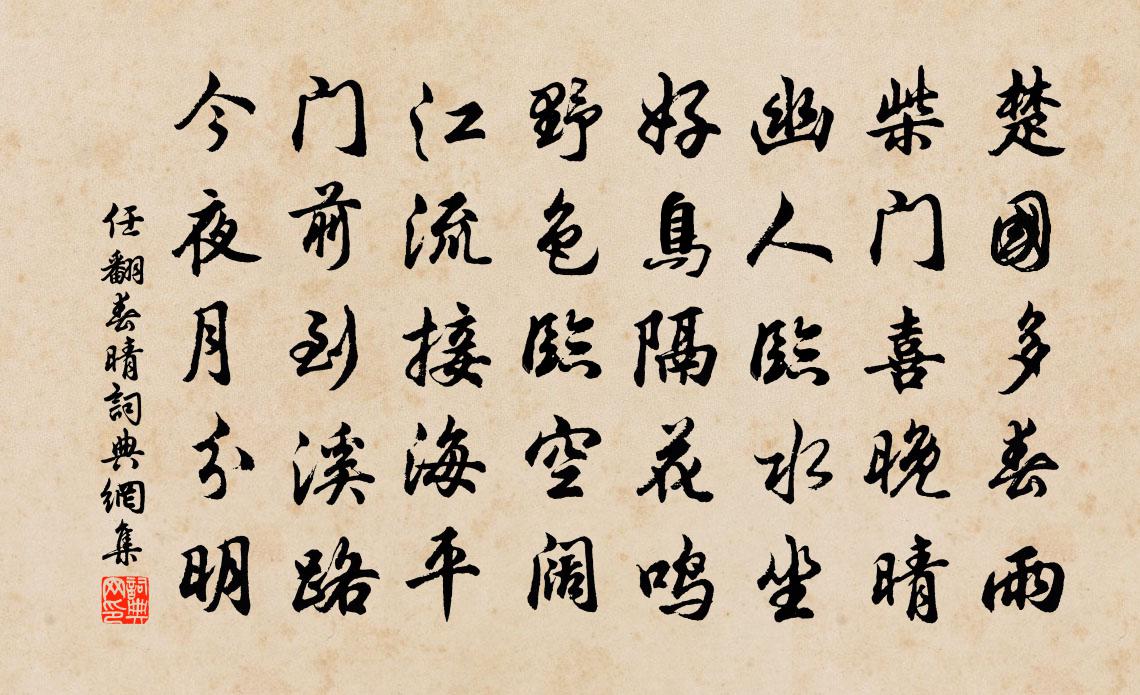 楚國多春雨
柴门喜晚晴
幽人臨水坐
好鳥隔花鸣
野色臨空阔
江流接海平
门前到溪路
今夜月分明
任翻春晴詞典網集
詞典网印